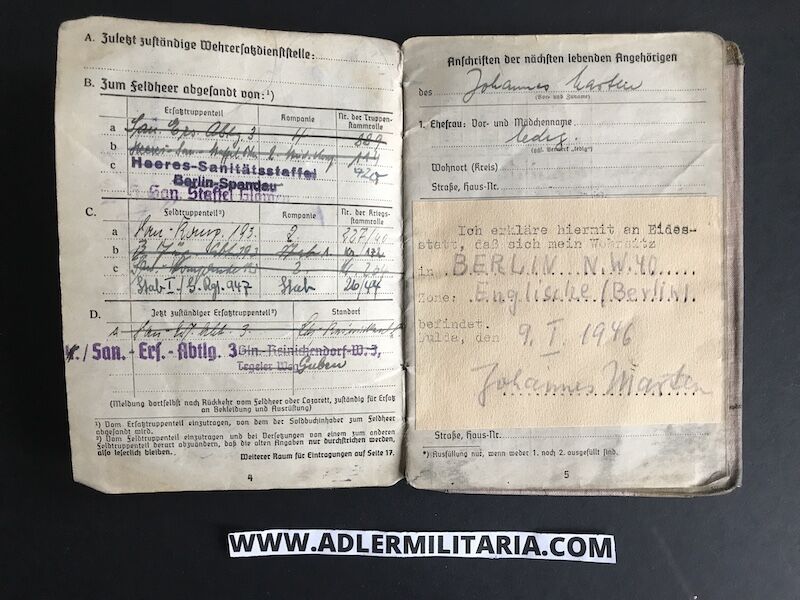 A. Zuletzt zuständige Wehrersatzdienststelle:
B. Zum Feldheer abgesandt von:¹)
Ersatztruppenteil Kompanie Nr. der Truppen-
stammrolle
a San. Ers. Abtlg. 3 889
b
c Heeres-Sanitätsstaffel
Berlin-Spandau
San. Staffel
C. Feldtruppenteil²) Kompanie Nr. der Kriegs-
stammrolle
a San.-Komp. 193. 2
b
c
Stab I./G. Rgt. 947 Stab 26/44
D. Jetzt zuständiger Ersatztruppenteil²) Standort
a
4./San.-Ers.-Abtlg. 3 Bln.-Reinickendorf-W. 3,
Tegeler Weg Guben
(Meldung dortselbst nach Rückkehr vom Feldheer oder Lazarett, zuständig für Ersatz
an Bekleidung und Ausrüstung)
¹) Vom Ersatztruppenteil einzutragen, von dem der Soldbuchinhaber zum Feldheer
abgesandt wird.
²) Vom Feldtruppenteil einzutragen und bei Versetzungen von einem zum anderen
Feldtruppenteil derart abzuändern, daß die alten Angaben nur durchstrichen werden,
also leserlich bleiben.
Weiterer Raum für Eintragungen auf Seite 17.
4
Anschriften der nächsten lebenden Angehörigen
des Johannes Marten
(Vor- und Zuname)
1. Ehefrau: Vor- und Mädchenname
ledig.
(ggf. Vermerk „ledig“)
Wohnort (Kreis)
Straße, Haus-Nr.
Ich erkläre hiermit an Eides-
statt, daß sich mein Wohnsitz
in BERLIN N.W. 40
Zone: Englische (Berlin)
befindet.
Fulda, den 9. I. 1946
Johannes Marten
Straße, Haus-Nr.
*) Ausfüllung nur, wenn weder 1. noch 2. ausgefüllt sind.
5
WWW.ADLERMILITARIA.COM